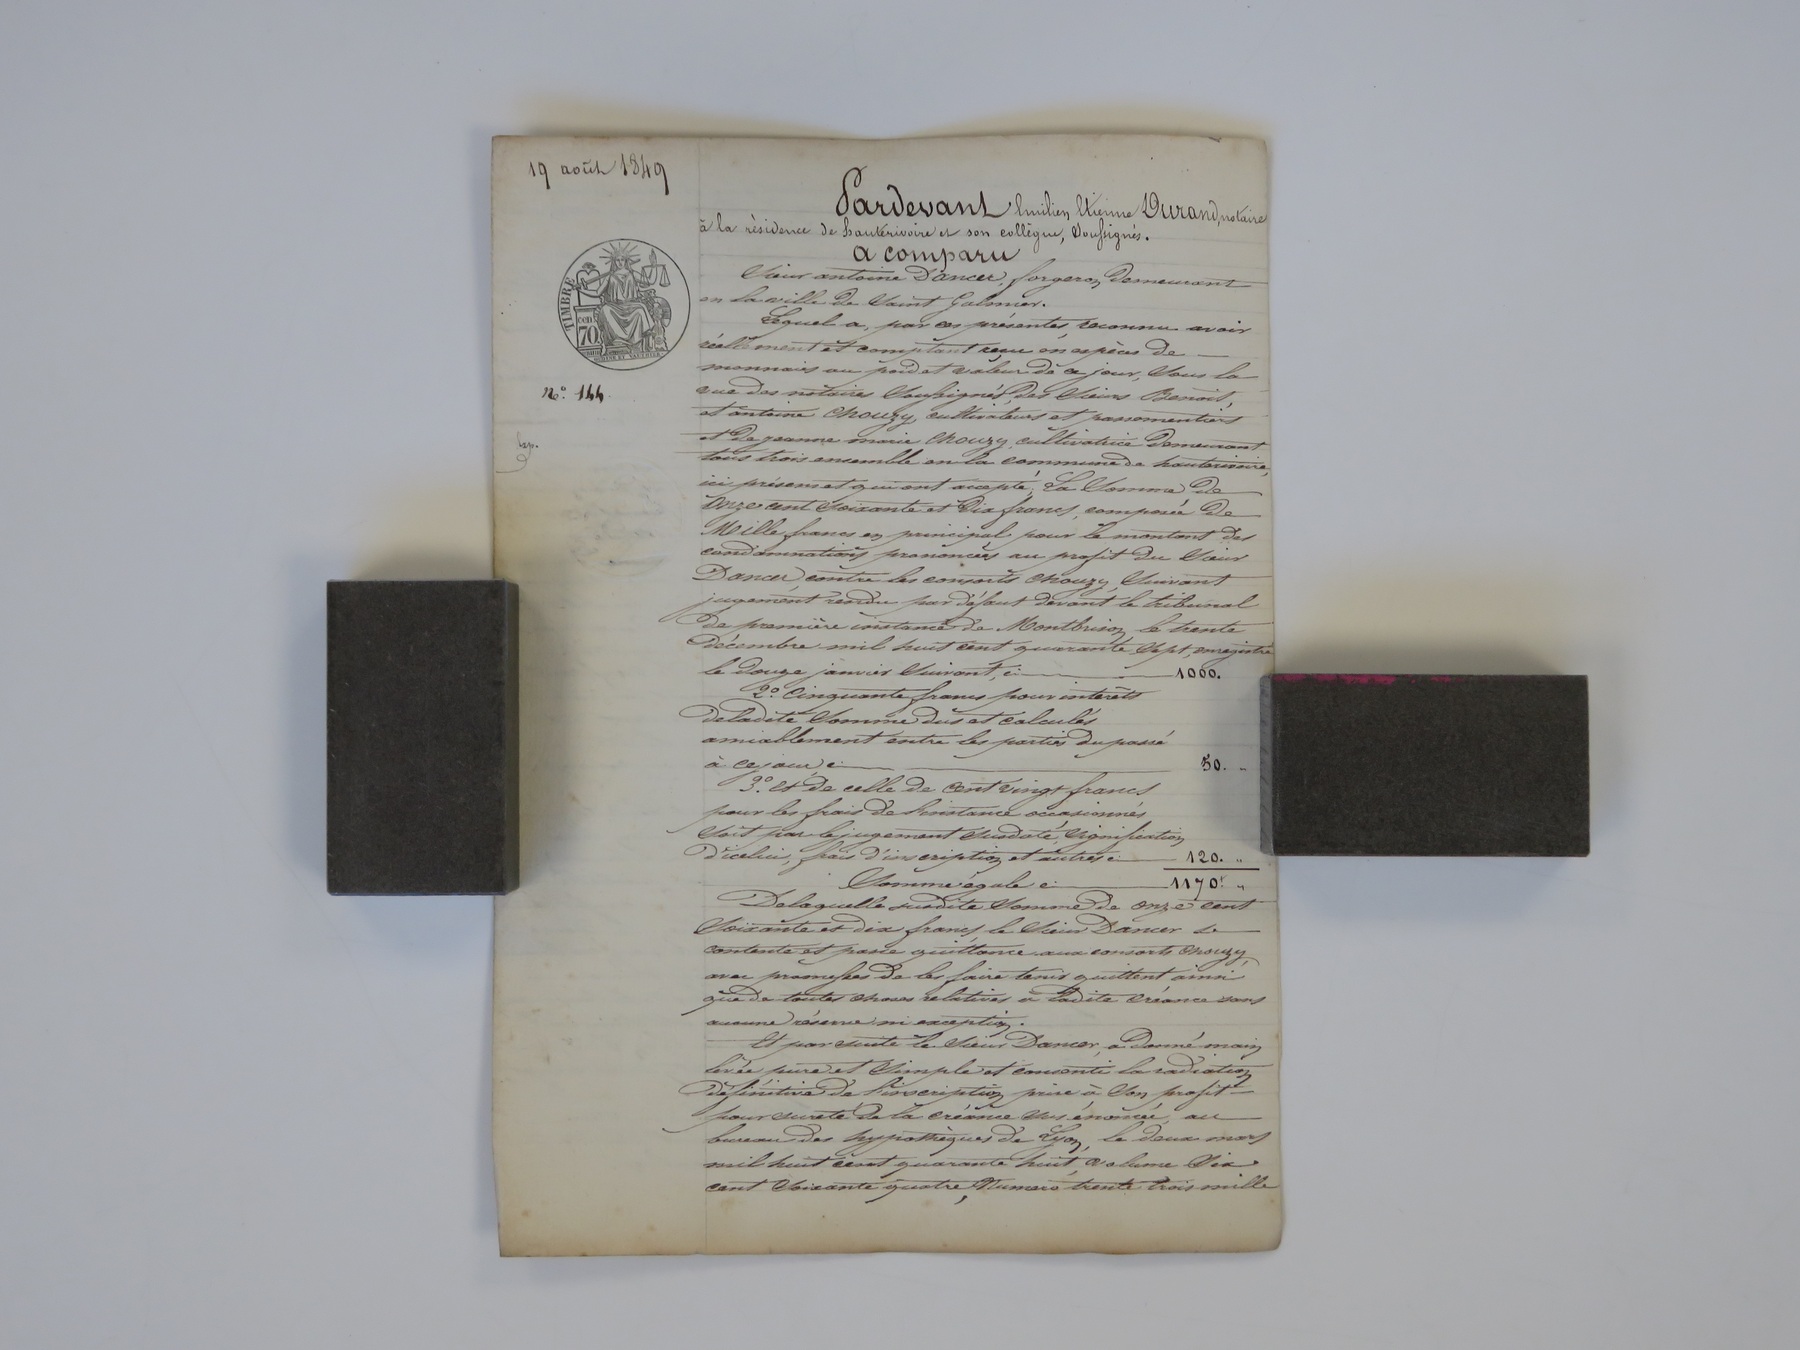 19 août 1849
TIMBRE
cen
70
n.° 144
exp.
Pardevant Emilien Etienne Durand, notaire
à la résidence de hauterivoire et son collègue, Soussignés.
a comparu
Sieur antoine Dancer, forgeron Demeurant
en la ville de Saint Galmier.
Lequel a, par ces présentes, reconnu avoir
réellement et comptant reçu en espèces de
monnaies au poid et valeur de ce jour, Sous la
vue des notaires Soussignés, Des Sieurs Benoit,
et antoine Chouzy, cultivateurs et passementiers
et De jeanne marie Chouzy, cultivatrice Demeurant
tous trois ensemble en la commune de hauterivoire,
ici présens et qui ont accepté, La Somme de
Onze cent Soixante et Dix francs, composée De
Mille francs en principal pour le montant des
condamnations prononcées au profit Du Sieur
Dancer, contre les consorts Chouzy, Suivant
jugement rendu par défaut devant le tribunal
De première instance de Montbrison, le trente
Décembre mil huit cent quarante Sept, enregistré
le Douze janvier Suivant, ci 1000.
2.° Cinquante francs pour intérêts
De ladite Somme dûs et calculés
amiablement entre les parties du passé
à ce jour ci 50. "
3.° et de celle de Cent vingt francs
pour les frais De l'instance occasionnés
Soit par le jugement Susdaté, Signification
D'icelui, frais d'inscription et autres ci 120. "
Somme égale ci 1170.f "
De laquelle susdite Somme De Onze cent
Soixante et dix francs, le Sieur Dancer se
contente et passe quittance aux consorts Chouzy,
avec promesses De les faire tenir quittent ainsi
que de toutes choses relatives à ladite créance sans
aucune réserve ni exception.
Et par suite le Sieur Dancer, a Donné main
levée pure et Simple et consenti la radiation
définitive De l'inscription prise à Son profit
pour sureté De la créance Sus énoncée, au
bureau Des hypothèques De Lyon, le deux mars
mil huit cent quarante huit, volume Six
cent Soixante quatre, Numéro trente trois mille